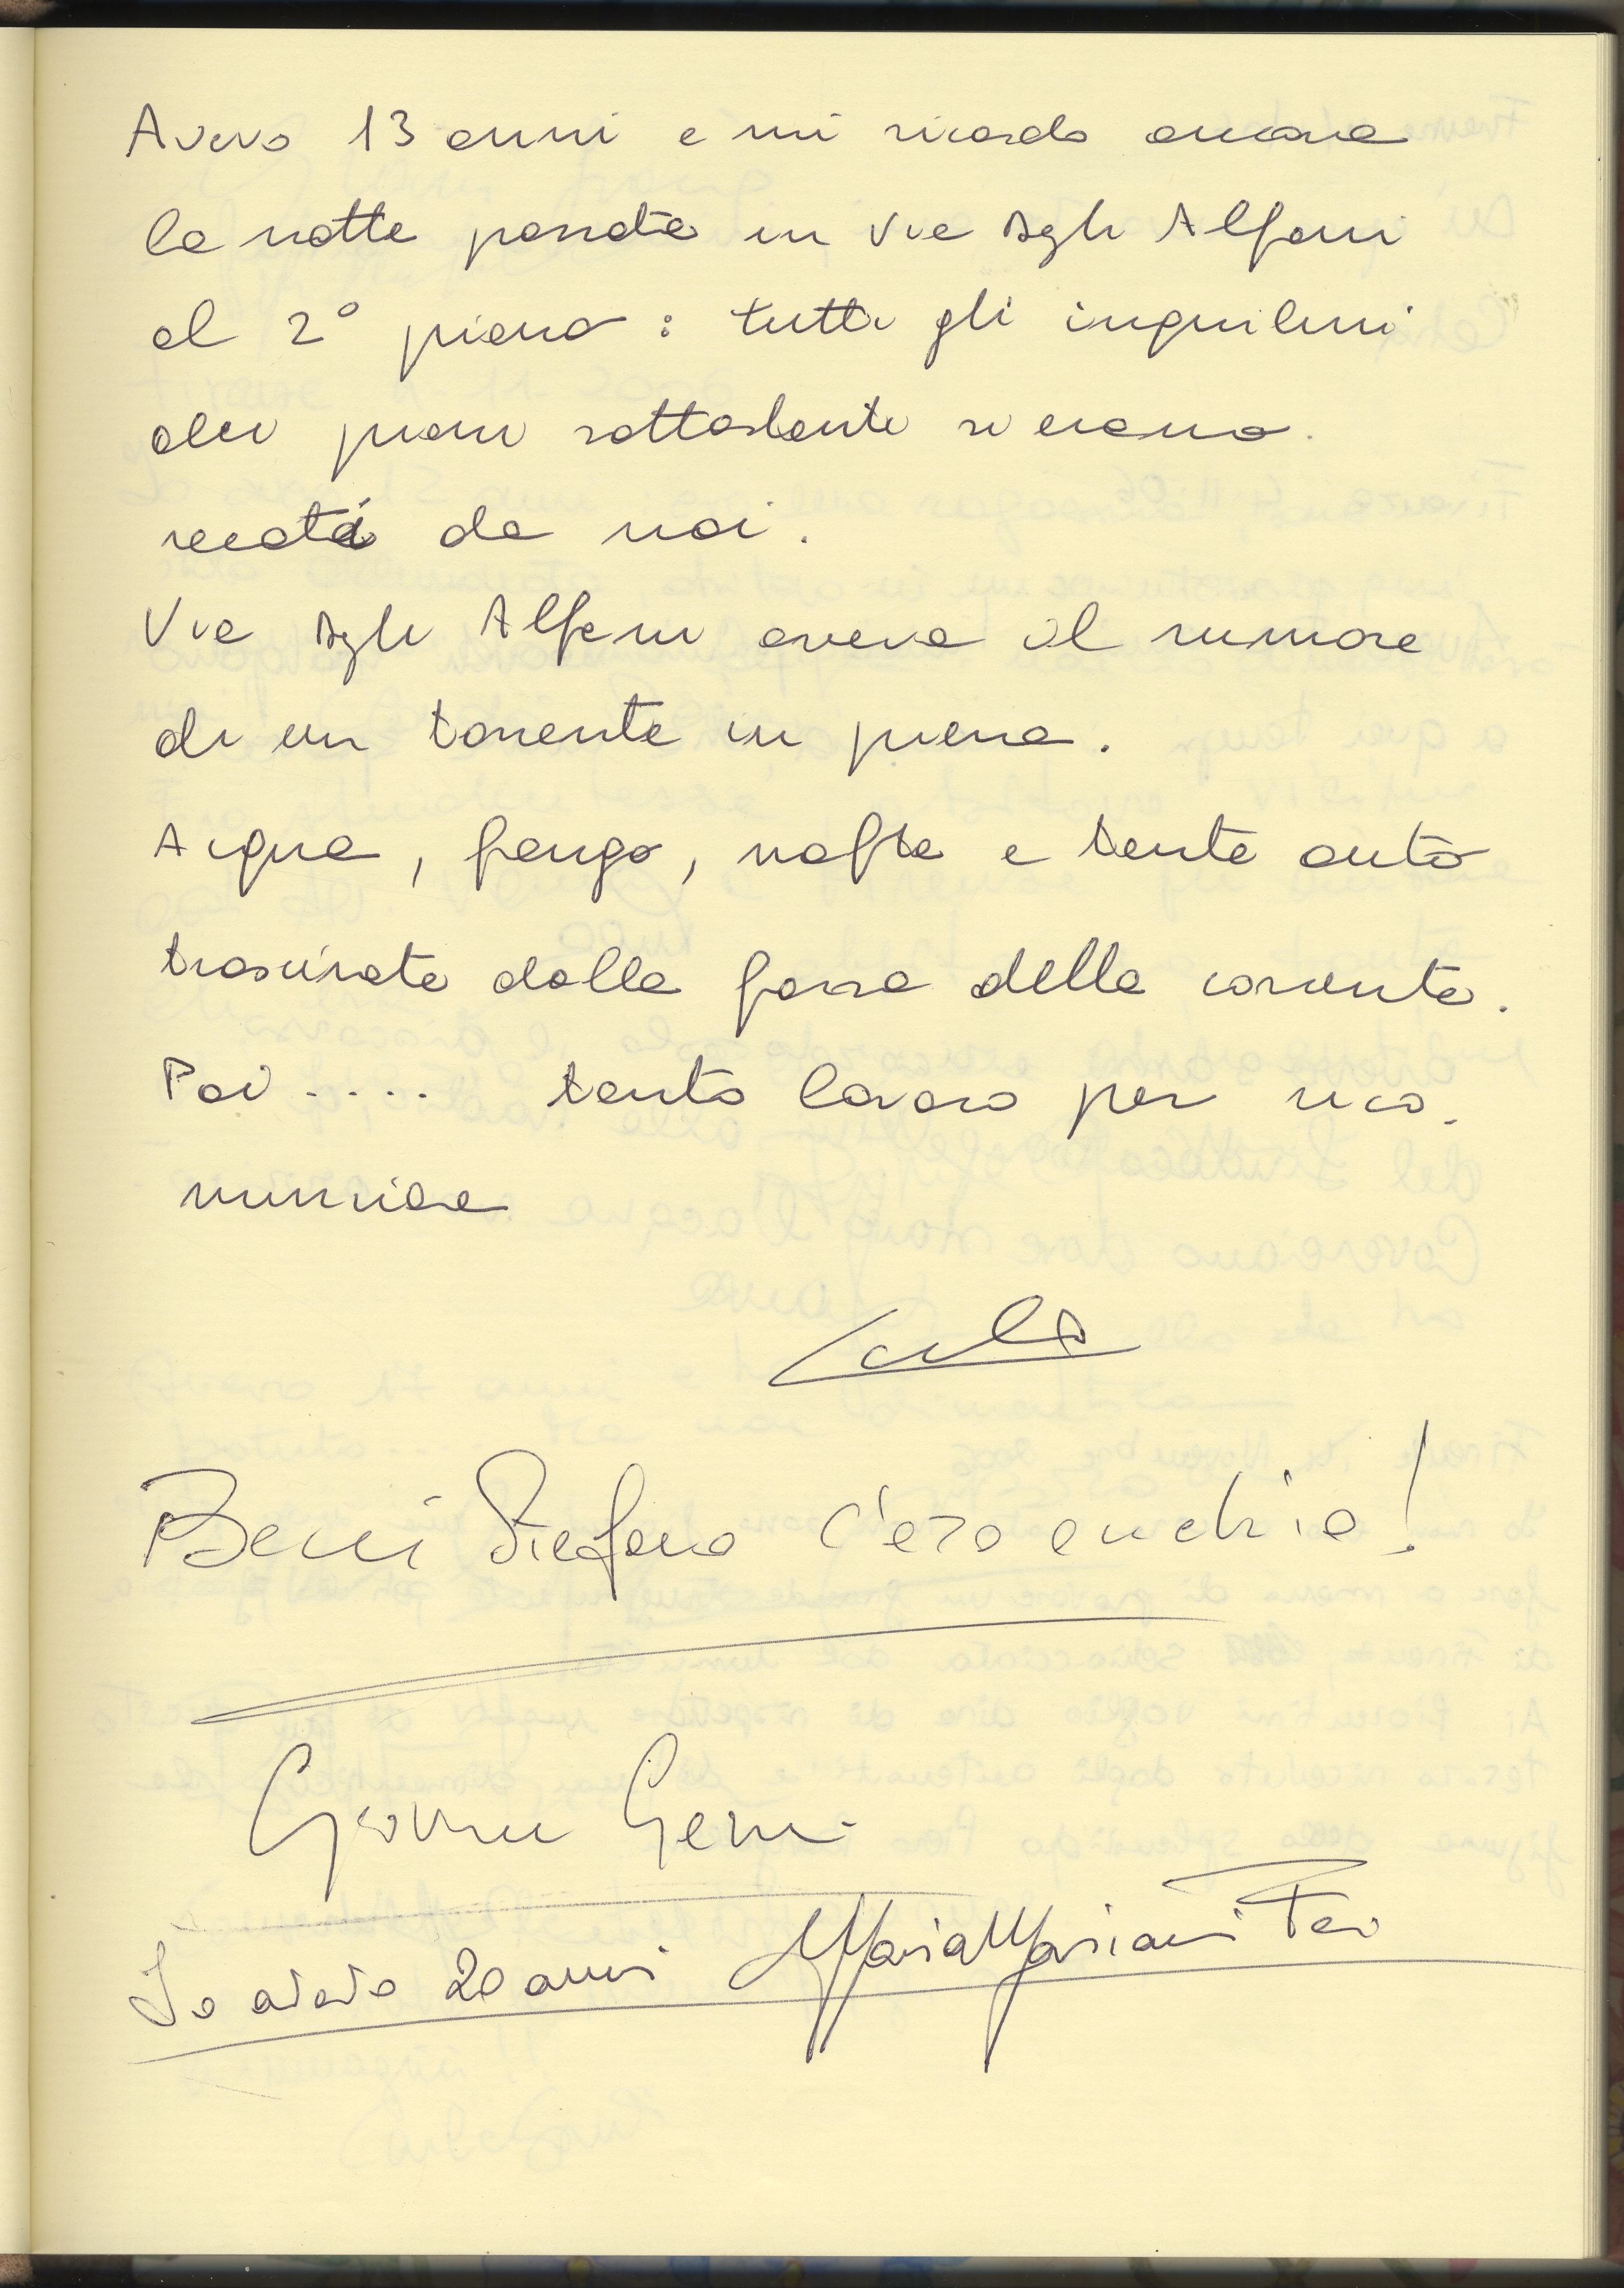 Avevo 13 anni e mi ricordo ancora
la notte passata in Via degli Alfani
al 2° piano: tutti gli inquilini
dei piani sottostanti si erano
recati da noi.
Via degli Alfani aveva il rumore
di un torrente in piena.
Acqua, fango, nafta e tante auto
trascinate dalla forza della corrente.
Poi .... tanto lavoro per rico.
minciare
Carla
Beni Stefano c'ero anch'io!
Gianni
Io avevo 20 anni Maria Mariani